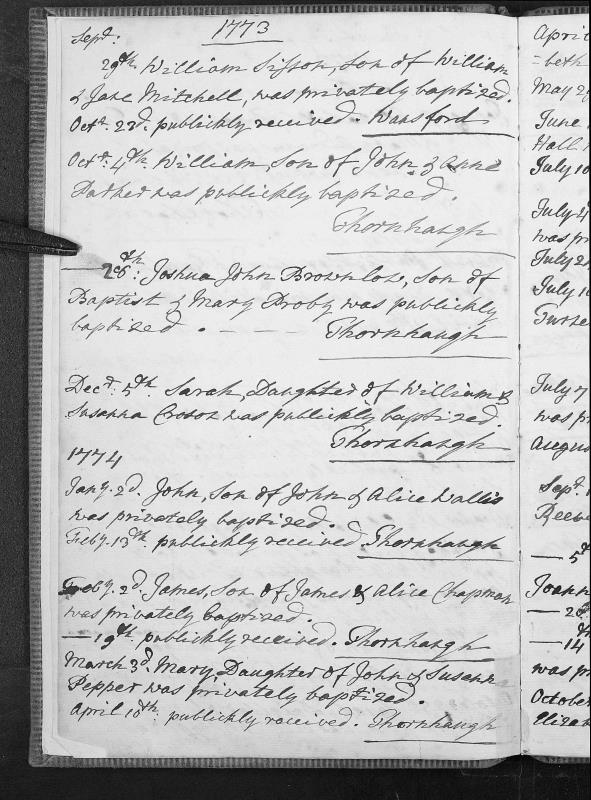 1773
Sept:
29th. William Sisson, son of William
& Jane Mitchell, was privately baptized.
Octr. 23d. publickly received. Wansford
Octr. 4th. William, Son of John & Anne
Father was publickly baptized.
Thornhaugh
— 26th: Joshua John Brownlow, son of
Baptist & Mary Proby was publickly
baptized. — — Thornhaugh
Decr. 5th. Sarah, Daughter of William &
Susanna was publickly baptized.
Thornhaugh
1774
Jany. 2d. John, Son of John & Alice Wallis
was privately baptized.
Feby. 13th. publickly received. Thornhaugh
Feby. 2d. James, Son of James & Alice Chapman
was privately baptized.
— 19th. publickly received. Thornhaugh
March 3d. Mary, Daughter of John & Susanna
Pepper was privately baptized.
April 10th: publickly received. Thornhaugh
April
=beth
May 2
June
Hall
July 10
July 4
was pr
July 2
July 1
Turne
July 7
was p
Augus
Sept. 1
Reeve
— 5
Joann
— 2
— 14
was p
October
Elizab